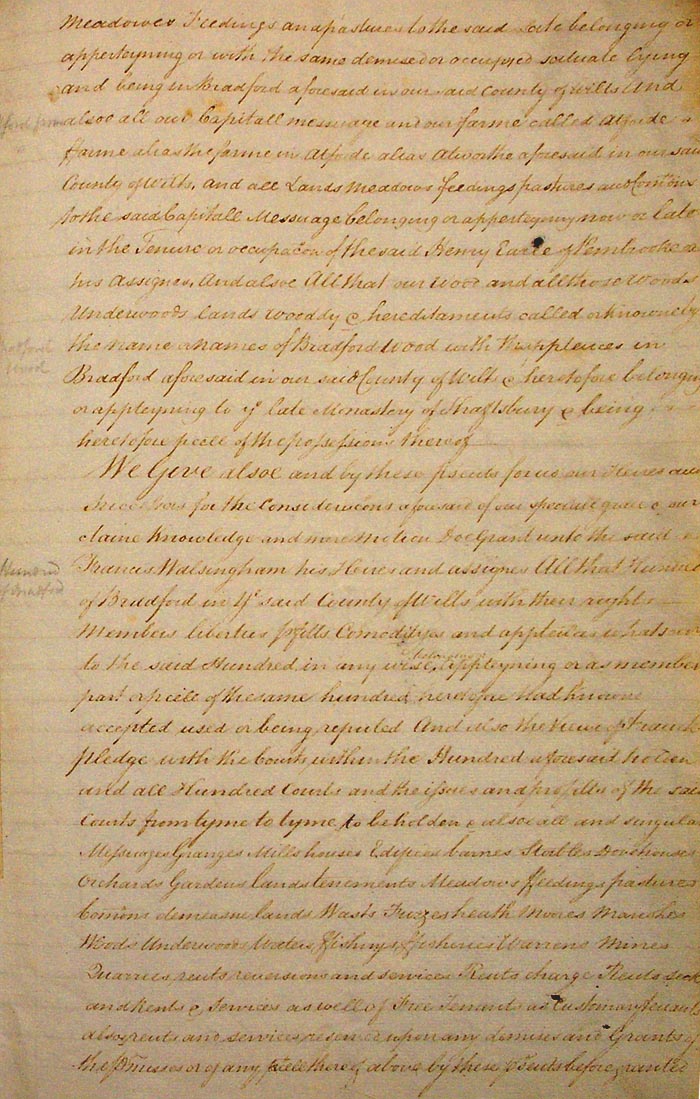 Meadowes Feedings and pastures to the said scite belonging or
apperteyning or with the same demised or occupyed scituate lying
and being in Bradford aforesaid in our said County of Wilts And
alsoe all our Capitall messuage and our farme called Atforde
farme alias the farme in Atforde alias Atworthe aforesaid in our said
County of Wilts, and all Lands Meadows feedings pastures and Comōns
to the said Capitall Messuage belonging or apperteyning now or late
in the Tenure or occupacon of the said Henry Earle of Pembrooke or
his Assignes, And alsoe All that our Wood and all those Woods
Underwoods lands wooddy & hereditaments called or knowne by
the name or names of Bradford Wood with Thapptences in
Bradford aforesaid in our said County of Wilts & heretofore belonging
or appteyning to yͤ late Monastery of Shaftsbury & being
heretofore pcell of the possessions thereof
We Give alsoe and by these psents for us our Heires and
Successors for the Considerāons aforesaid of our speciall grace & our
claine Knowledge and mere motion Doe Grant unto the said
Francis Walsingham his Heires and assignes All that Hundred
of Bradford in yͤ said County of Wilts with their rights
Members liberties pfitts Comodityes and apptences whatsoever
to the said Hundred in any wise appteyning or as member
part or pcell of the same hundred heretofore had knowne
accepted used or being reputed And also the View of Franck
pledge with the Courts within the Hundred aforesaid holden
and all Hundred Courts and the issues and profitts of the said
Courts from tyme to tyme to be holden & alsoe all and singular
Messuages Granges Mills houses Edifices barnes Stables Dovehouses
Orchards Gardens lands tenements Meadows ffeedings pastures
Comōns demeasne lands Wasts Furzes heath Moores Marshes
Woods Underwoods Waters ffishings ffisheries Warrens Mines
Quarries rents reversions and services Rents charge Rents seck
and Rents & Services as well of Free Tenants as Customary tenants
also rents and services reserved upon any demises and Grants of
the pmisses or of any pcell thereof above by these psents before granted
Bradford
wood
Hundred
of Bradford